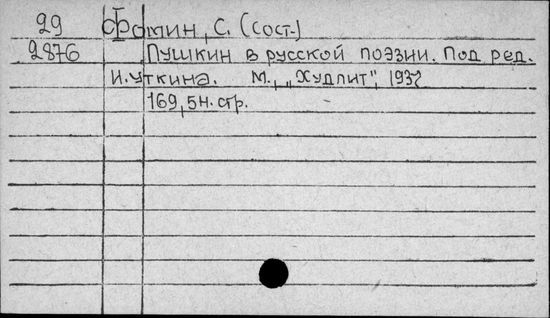 29 Фомин, С. (сост.)
2876 Пушкин в русской поэзии. Под ред.
И. Уткина. М., „Худлит", 1937
169, 5н. стр.